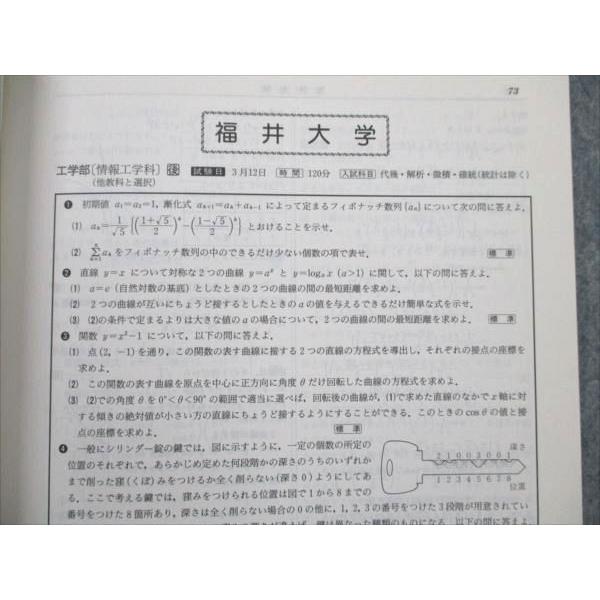 73
福井大学
工学部〔情報工学科〕 後 試験日 3月12日 時間 120分 入試科目 代幾・解析・微積・確統(統計は除く)
(他教科と選択)
❶ 初期値 a₁=a₂=1, 漸化式 aₙ₊₁=aₙ+aₙ₋₁ によって定まるフィボナッチ数列{aₙ}について次の問に答えよ.
(1) aₙ=1/√5{((1+√5)/2)ⁿ-((1-√5)/2)ⁿ} とおけることを示せ.
(2) Σₖ₌₁ⁿ aₖ をフィボナッチ数列の中のできるだけ少ない個数の項で表せ. 標準
❷ 直線 y=x について対称な2つの曲線 y=aˣ と y=logₐx (a>1) に関して, 以下の問に答えよ.
(1) a=e (自然対数の基底) としたときの2つの曲線の間の最短距離を求めよ.
(2) 2つの曲線が互いにちょうど接するとしたときの a の値を与えるできるだけ簡単な式を示せ.
(3) (2)の条件で定まるよりは大きな値の a の場合について, 2つの曲線の間の最短距離を求めよ. 標準
❸ 関数 y=x²-1 について, 以下の問に答えよ.
(1) 点(2, -1)を通り, この関数の表す曲線に接する2つの直線の方程式を導出し, それぞれの接点の座標を
求めよ.
(2) この関数の表す曲線を原点を中心に正方向に角度 θ だけ回転した曲線の方程式を求めよ.
(3) (2)での角度 θ を 0°<θ<90° の範囲で適当に選べば, 回転後の曲線が, (1)で求めた直線のなかで x 軸に対
する傾きの絶対値が小さい方の直線にちょうど接するようにすることができる. このときの cosθ の値と接
点の座標を求めよ. 標準
❹ 一般にシリンダー錠の鍵では, 図に示すように, 一定の個数の所定の
位置のそれぞれで, あらかじめ定めた何段階かの深さのうちのいずれか
まで削った窪(くぼ)みをつけるか全く削らない(深さ0)ようにしてあ
る. ここで考える鍵では, 窪みをつけられる位置は図で1から8までの
番号をつけた8箇所あり, 深さは全く削らない場合の0の他に, 1, 2, 3の番号をつけた3段階が用意されてい
深さ
2 1 0 0 3 0 0 1
1 2 3 4 5 6 7 8
位置